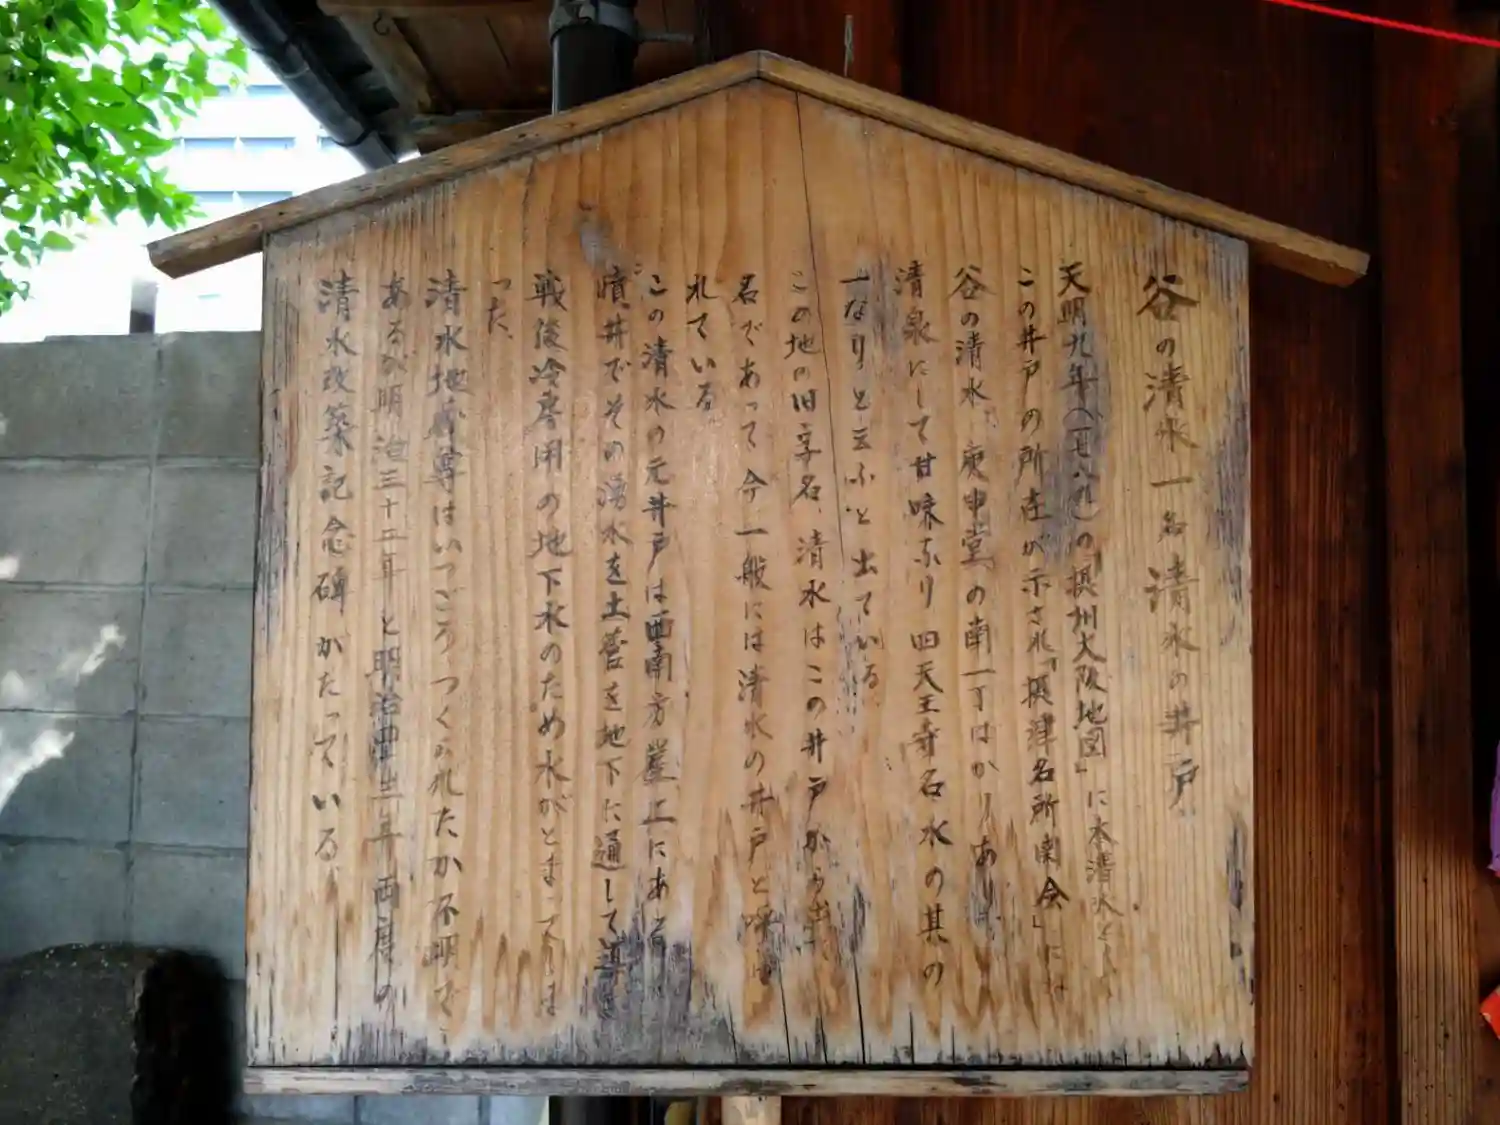 谷の清水一名清水の井戸
天明九年(一七八九)の「摂州大阪地図」に本清水として
この井戸の所在が示され「摂津名所図会」には
谷の清水 庚申堂の南一丁はかりあり
清泉にして甘味なり四天王寺名水の其の
一なりと云ふと出ている
この地の旧字名、清水はこの井戸から出た
名であって今一般には清水の井戸と呼ば
れている
この清水の元井戸は西南方崖上にあり
噴井でその湧水を土管を地下に通して導き
戦後冷房用の地下水のため水がとまってしま
った、
清水地蔵尊はいつごろつくられたか不明で
あるが明治三十二年と明治四十三年両度の
清水改築記念碑がたっている